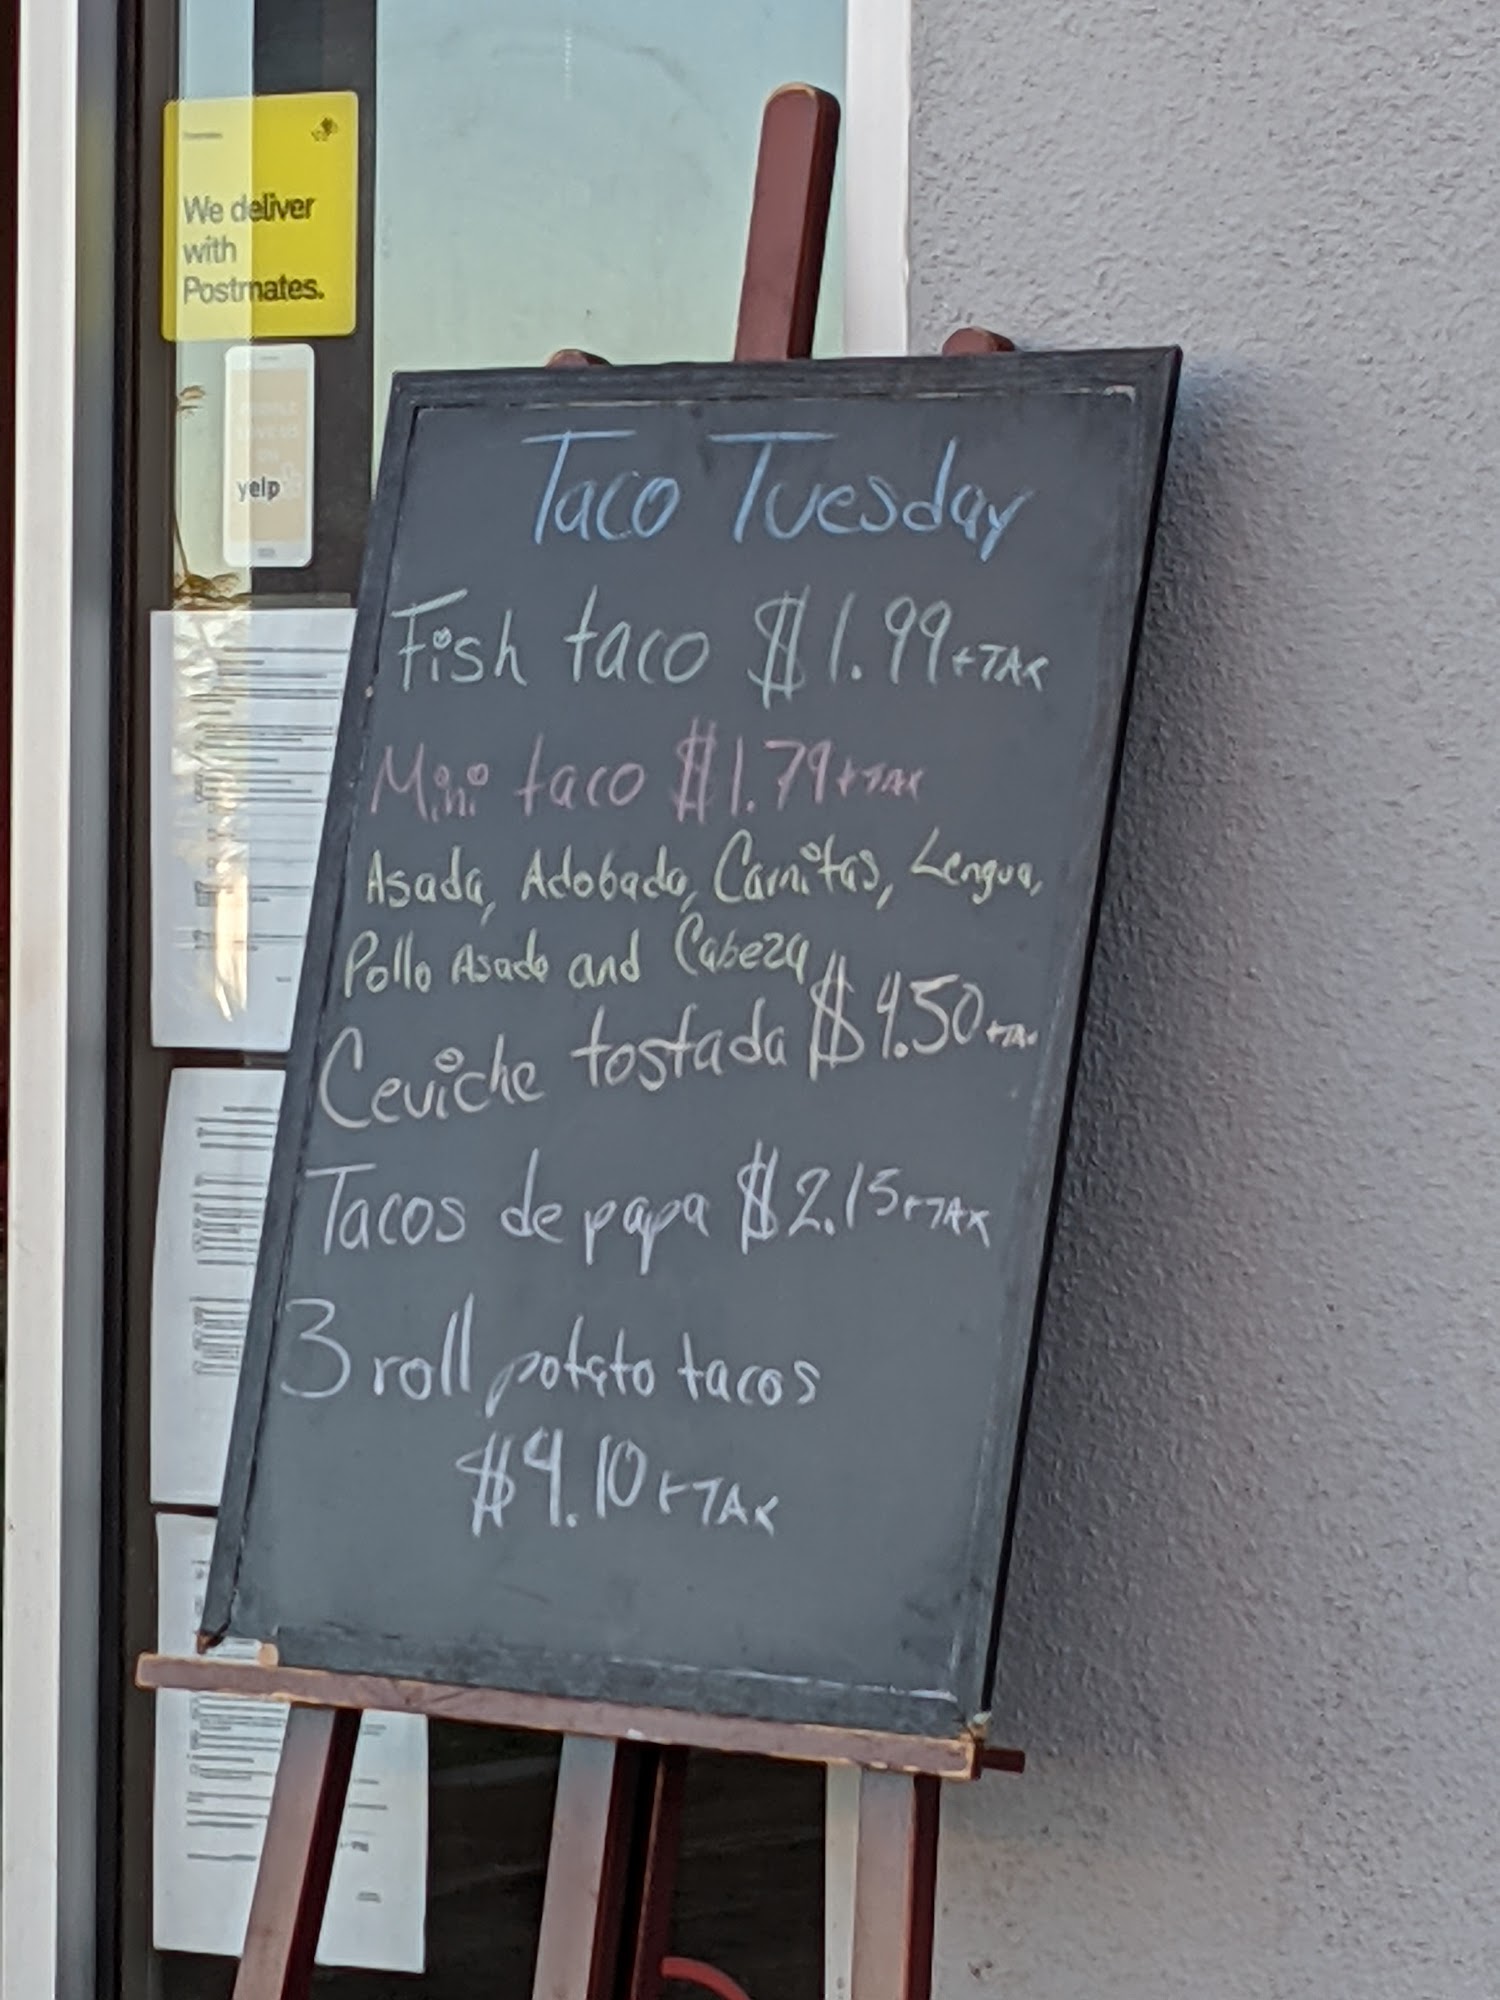 We deliver
with
Postmates.
yelp
Taco Tuesday
Fish taco $1.99+TAX
Mini taco $1.79+TAX
Asada, Adobada, Carnitas, Lengua,
Pollo Asado and Cabeza
Ceviche tostada $4.50+TAX
Tacos de papa $2.15+TAX
3 roll potato tacos
$4.10+TAX